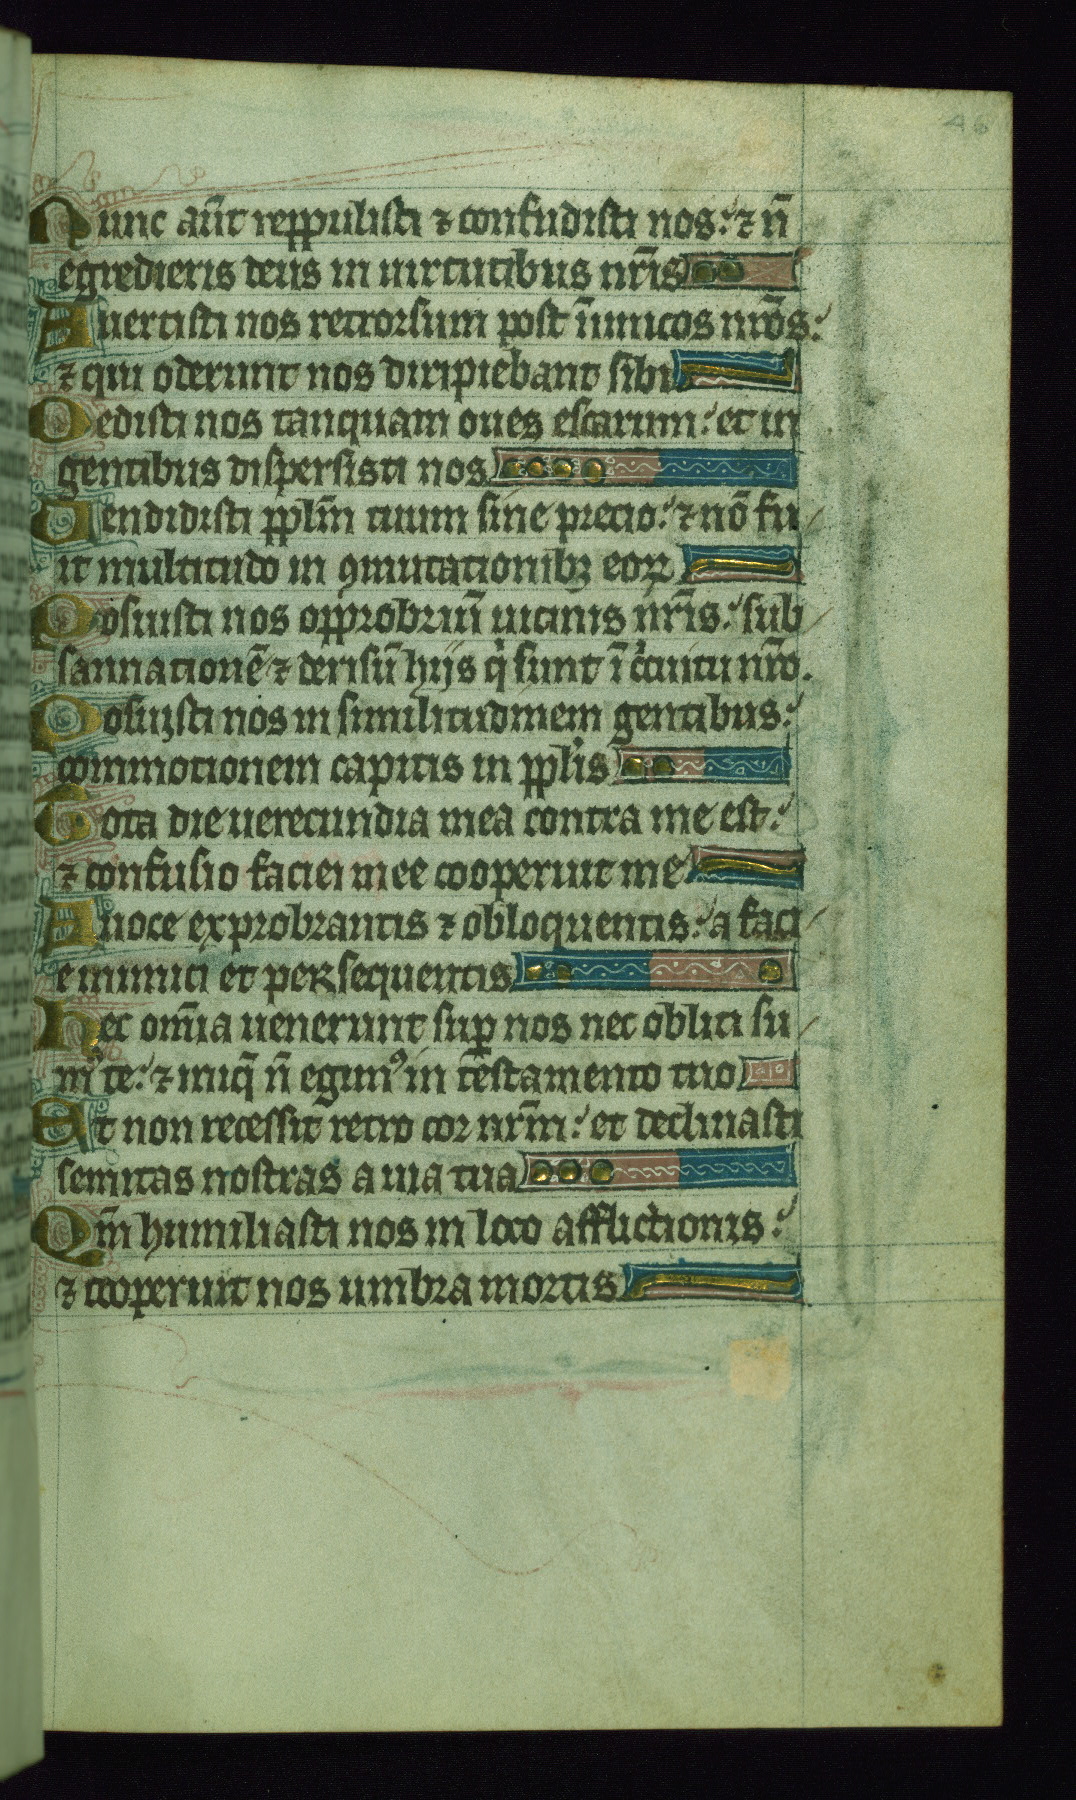 Nunc aūt reppulisti ⁊ confudisti nos: ⁊ n̄
egredieris deus in uirtutibus nr̄is
Auertisti nos retrorsum post īimicos nr̄os:
⁊ qui oderunt nos diripiebant sibi
Dedisti nos tanquam oues escarum: et in
gentibus dispersisti nos
Uendidisti pplm̄ tuum sine precio: ⁊ nō fu
it multitudo in ꝯmutationibꝫ eoꝝ
Posuisti nos opprobriū uicinis nr̄is: sub
sannationē ⁊ derisū hijs q̇ sunt ī c̄cuitu nr̄o.
Posuisti nos in similitudinem gentibus:
commotionem capitis in pplis
Tota die uerecundia mea contra me est:
⁊ confusio faciei mee cooperuit me
A uoce exprobrantis ⁊ obloquentis: a faci
e inimici et persequentis
Hec om̄ia uenerunt sup nos nec obliti su
mꝰ te: ⁊ iniq̄ n̄ egimꝰ in testamento tuo
Et non recessit retro cor nr̄m: et declinasti
semitas nostras a uia tua
Qm̄ humiliasti nos in loco afflictionis:
⁊ cooperuit nos umbra mortis